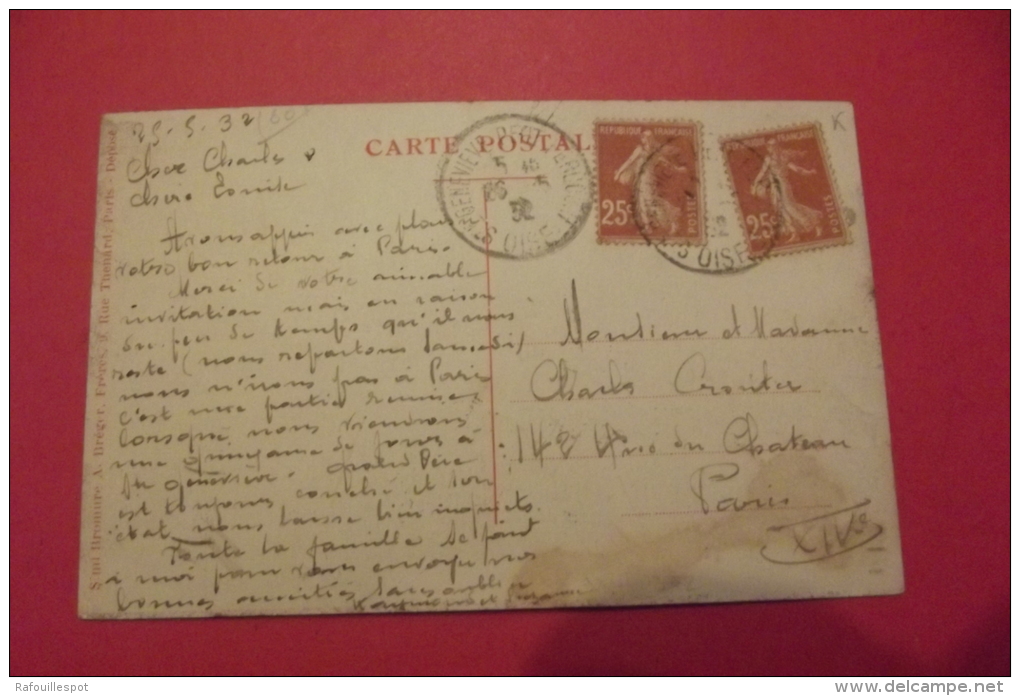 25-5-32
Cher Charles &
CARTE POSTALE
Avons appris avec plaisir
votre bon retour à Paris.
Merci de votre aimable
invitation mais en raison
du peu de temps qu'il nous
reste (nous repartons samedi)
nous n'irons pas à Paris
C'est une partie remise
lorsque nous viendrons
une quinzaine de jours à
Ste Geneviève. Grand Père
est toujours couché et son
état nous laisse bien inquiets.
Toute la famille se joint
à moi pour vous envoyer nos
bonnes amitiés sans oublier
Raymond et Suzanne
S'ini Bromure A. Bréger, Frères, 9, Rue Thénard, Paris Déposé
STE GENEVIEVE DES
26 5
32
S. OISE
REPUBLIQUE FRANÇAISE
25c
POSTES
FRANÇAISE
25c
POSTES
S. OISE
K
Monsieur et Madame
Charles
142 Avenue du Chateau
Paris
XIVe
Rafouillespot
www.delcampe.net